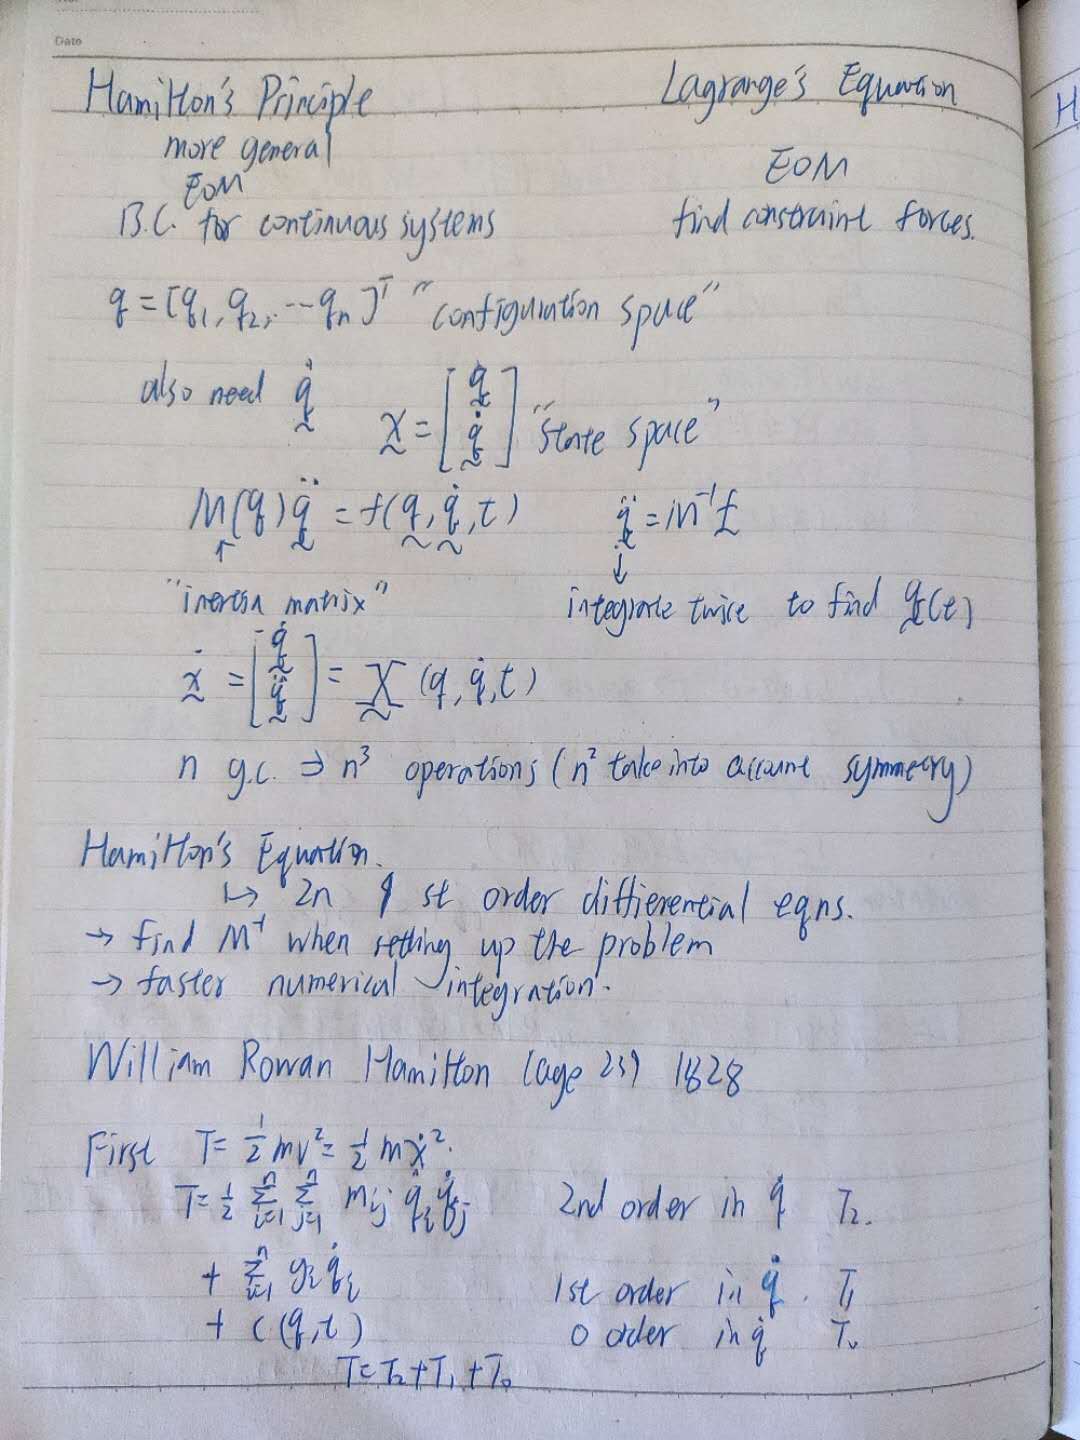 Date
Hamilton's Principle Lagrange's Equation
H
more general EOM
EOM
B.C. for continuous systems find constraint forces.
q = [q₁, q₂, ...qₙ]ᵀ "configuration space"
also need q̇ x = [q q̇] "state space"
M(q) q̈ = f(q, q̇, t) q̈ = m⁻¹f
↑ ↓
"inertia matrix" integrate twice to find q(t)
ẋ = [q̇ q̈] = X (q, q̇, t)
n g.c. ⇒ n³ operations (n² take into account symmetry)
Hamilton's Equation.
↳ 2n 1st order differential eqns.
→ find M⁻¹ when setting up the problem
→ faster numerical integration.
William Rowan Hamilton (age 23) 1828
First T = ½ mv² = ½ mẋ².
T = ½ Σⁿᵢ₌₁ Σⁿⱼ₌₁ mᵢⱼ q̇ᵢ q̇ⱼ 2nd order in q̇ T₂.
+ Σⁿᵢ₌₁ gᵢ q̇ᵢ 1st order in q̇. T₁
+ C (q, t) 0 order in q̇ T₀
T = T₂ + T₁ + T₀